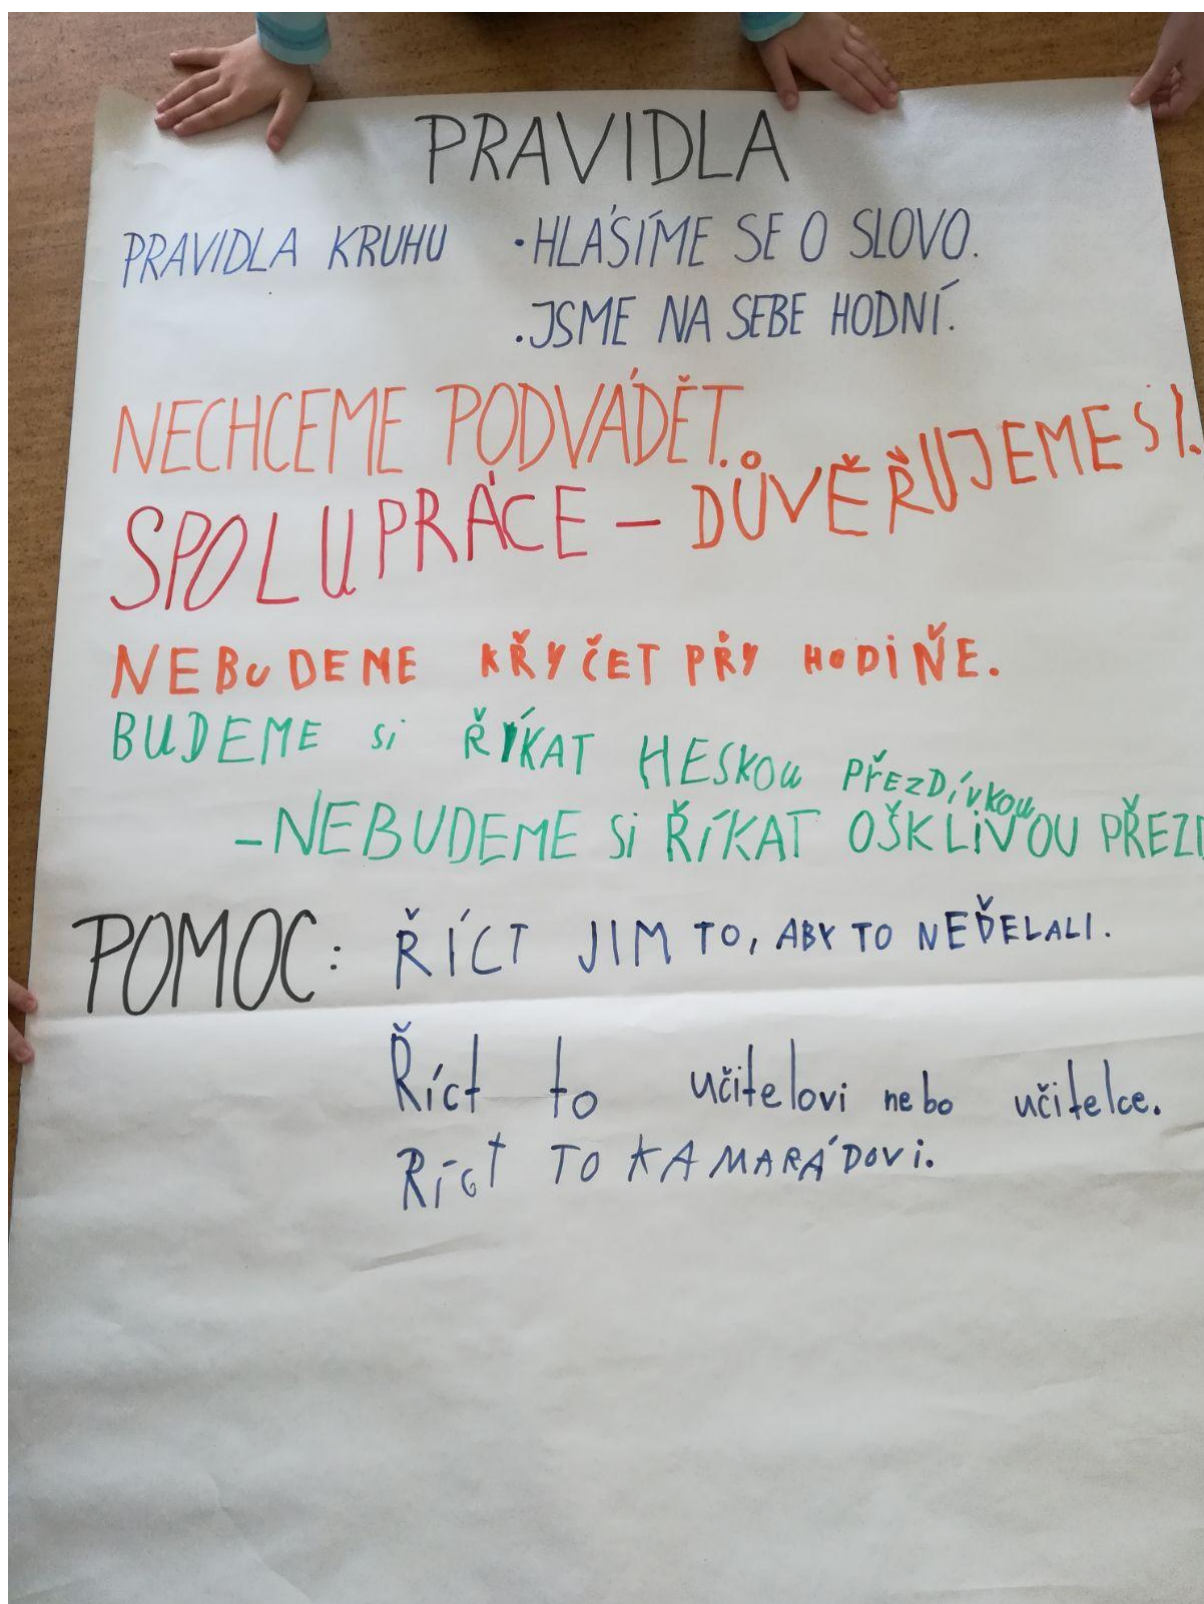 PRAVIDLA
PRAVIDLA KRUHU • HLÁSÍME SE O SLOVO.
• JSME NA SEBE HODNÍ.
NECHCEME PODVÁDĚT.
SPOLUPRÁCE – DŮVĚŘUJEME SI.
NEBUDEME KŘYČET PŘY HODIŇE.
BUDEME Si ŘÍKAT HESKOU PŘEZDÍVKOU
– NEBUDEME Si ŘÍKAT OŠKLIVOU PŘEZD
POMOC: ŘÍCT JIM TO, ABY TO NEĎELALI.
Říct to učitelovi nebo učitelce.
Ríct TO KAMARÁDOVi.